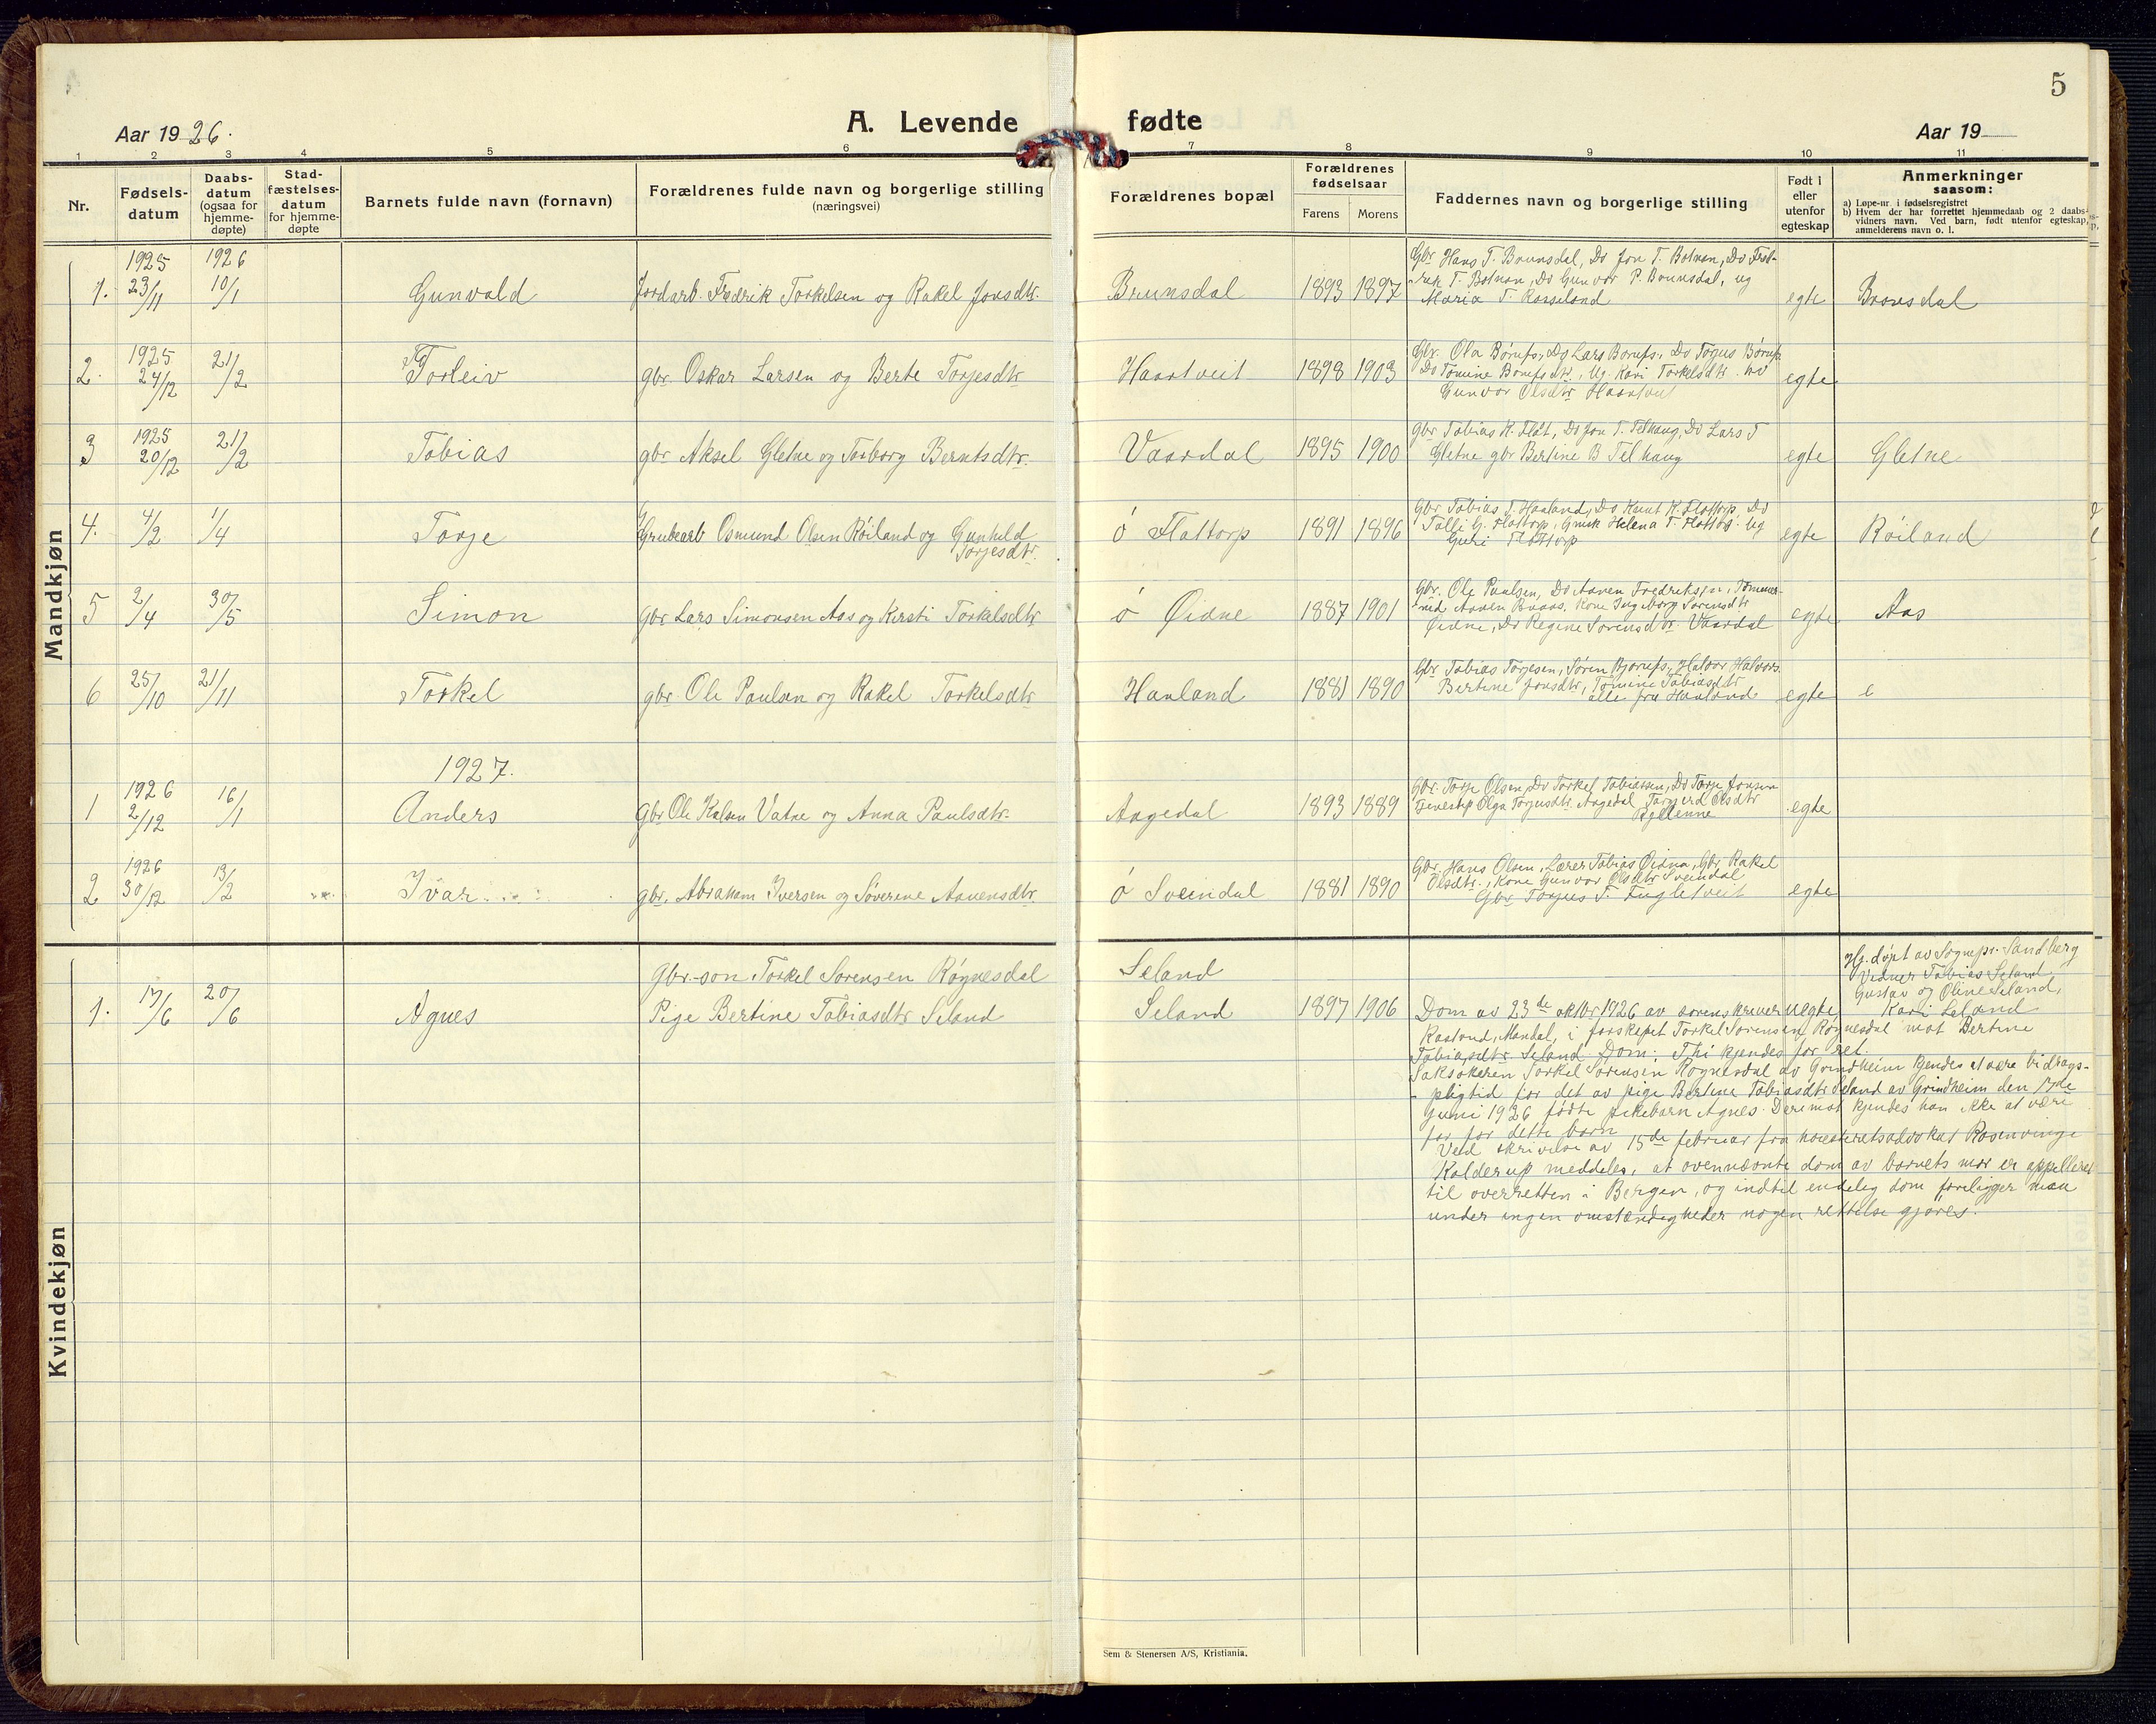 5
Aar 1926.
A. Levende fødte
Aar 19
1 2 3 4 5 6 7 8 9 10 11
Nr.
Fødsels-
datum
Daabs-
datum
(ogsaa for
hjemme-
døpte)
Stad-
fæstelses-
datum
for hjemme-
døpte
Barnets fulde navn (fornavn)
Forældrenes fulde navn og borgerlige stilling
(næringsvei)
Forældrenes bopæl
Forældrenes
fødselsaar
Farens Morens
Faddernes navn og borgerlige stilling
Født i
eller
utenfor
egteskap
Anmerkninger
saasom:
a) Løpe-nr. i fødselsregistret
b) Hvem der har forrettet hjemmedaab og 2 daabs-
vidners navn. Ved barn, født utenfor egteskap,
anmelderens navn o. l.
Mandkjøn
1925 1926
1. 23/11 10/1 Gunvald Jordarb. Fredrik Torkelsen og Rakel Jonsdtr. Brunsdal 1893 1897 egte Bronsdal
Gbr Hans T. Brunsdal, Do Jon T. Botnan, Do Fred-
rik T. Botnan, Do Gunvor P. Brunsdal, ug
Maria T. Rosseland
1925
2. 24/12 21/2 Torleiv gbr. Oskar Larsen og Berte Torjesdtr Haartveit 1898 1903 egte
Gbr. Ola Børufs, Do Lars Børufs, Do Torjus Børufs
Do Tomine Børufsdtr, Ug. Kari Torkelsdtr.
Gunvor Olsdtr Haartveit
1925
3 20/12 21/2 Tobias gbr Aksel Gletne og Torborg Berntsdtr. Vaardal 1895 1900 egte Gletne
gbr Tobias K. Flat, Do Jon T. Telhaug, Do Lars T
Gletne gbr Bertine B Telhaug
4. 4/2 1/4 Torje Grubearb Osmund Olsen Røiland og Gunhild
Torjesdtr.
ö Flattorp 1891 1896 egte Røiland
Gbr Tobias T. Haaland, Do Knut K. Flottorp, Do
Talli G. Flottorp, Helena T. Flottorp. Ug
Guri Flottorp
5 2/4 30/5 Simon Gbr Lars Simonsen Aas og Kersti Torkelsdtr ö Øidne 1887 1901 egte Aas
Gbr. Ole Paulsen, Do Aanen Fredriksen, Tømmer-
md Aanen Kone Ingeborg Sorensdtr
Øidne, Do Regine Sorensdtr Vaardal
6 25/10 21/11 Torkel gbr. Ole Paulsen og Rakel Torkelsdtr Haaland 1881 1890 egte e
Gbr Tobias Torjesen, Søren Bjorufs, Halvor Halvors.
Bertine Jonsdtr, Tomine Tobiasdtr
alle fra Haaland
1927.
1926
1 2/12 16/1 Anders Gbr Ole Kalsen Vatne og Anna Paulsdtr. Aagedal 1893 1889 egte
Gbr. Torje Olsen, Do Torkel Tobiassen, Do Torje Jonsen
Olga Torjusdtr. Aagedal Torgerd Olsdtr
1926
2 30/12 13/2 Ivar gbr. Abraham Iversen og Søverene Aanensdtr ö Sveindal 1881 1890 egte
Gbr. Hans Olsen, Lærer Tobias Øidna, Gbr. Rakel
Olsdtr., Kone Gunvor Olsdtr Sveindal
Gbr Torjus T. Fugletveit
Kvindekjøn
Gbr-son Torkel Sorensen Røgnesdal Seland
1. 17/6 20/6 Agnes Pige Bertine Tobiasdtr Seland Seland 1897 1906 uegte
Hj. døpt av Sognepr. Sandberg
Vidner Tobias Seland,
Gustav og Oline Seland,
Kari Seland
Dom av 23de oktbr 1926 av sorenskriver
Raaland, Mandal, i farskapet Torkel Sorensen Røgnesdal mot Bertine
Tobiasdtr Seland Dom: Thi kjendes for ret.
Saksøkeren Torkel Sorensen Rognesdal av Grindheim kjendes at være bidrags-
pligtid for det av pige Bertine Tobiasdtr Seland av Grindheim den 17de
juni 1926 fødte pikebarn Agnes. Derimot kjendes han ikke at være
far for dette barn
Ved skrivelse av 15de februar fra høiesteretsadvokat Rosenvinge
Kolderup meddeles, at ovennævnte dom av barnets mor er appelleret
til overretten i Bergen, og indtil endelig dom foreligger maa
under ingen omstændigheder nogen rettelse gjøres.
Sem & Stenersen A/S, Kristiania.